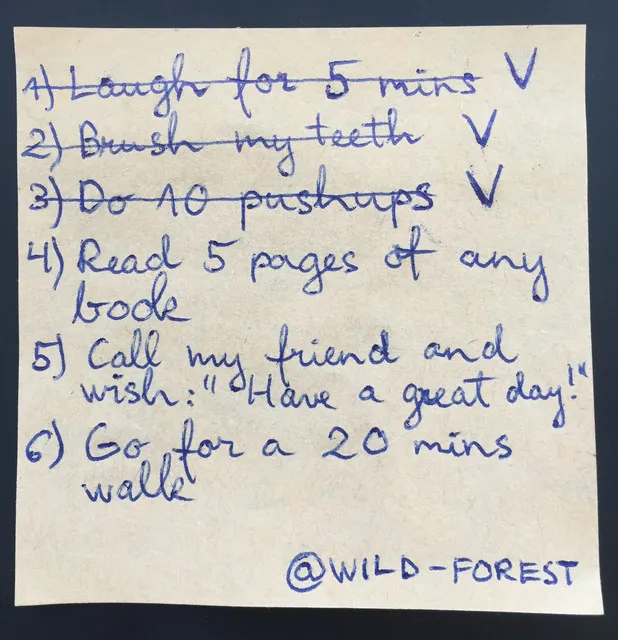 1) Laugh for 5 mins V
2) Brush my teeth V
3) Do 10 pushups V
4) Read 5 pages of any
book
5) Call my friend and
wish: "Have a great day!"
6) Go for a 20 mins
walk
@WILD-FOREST